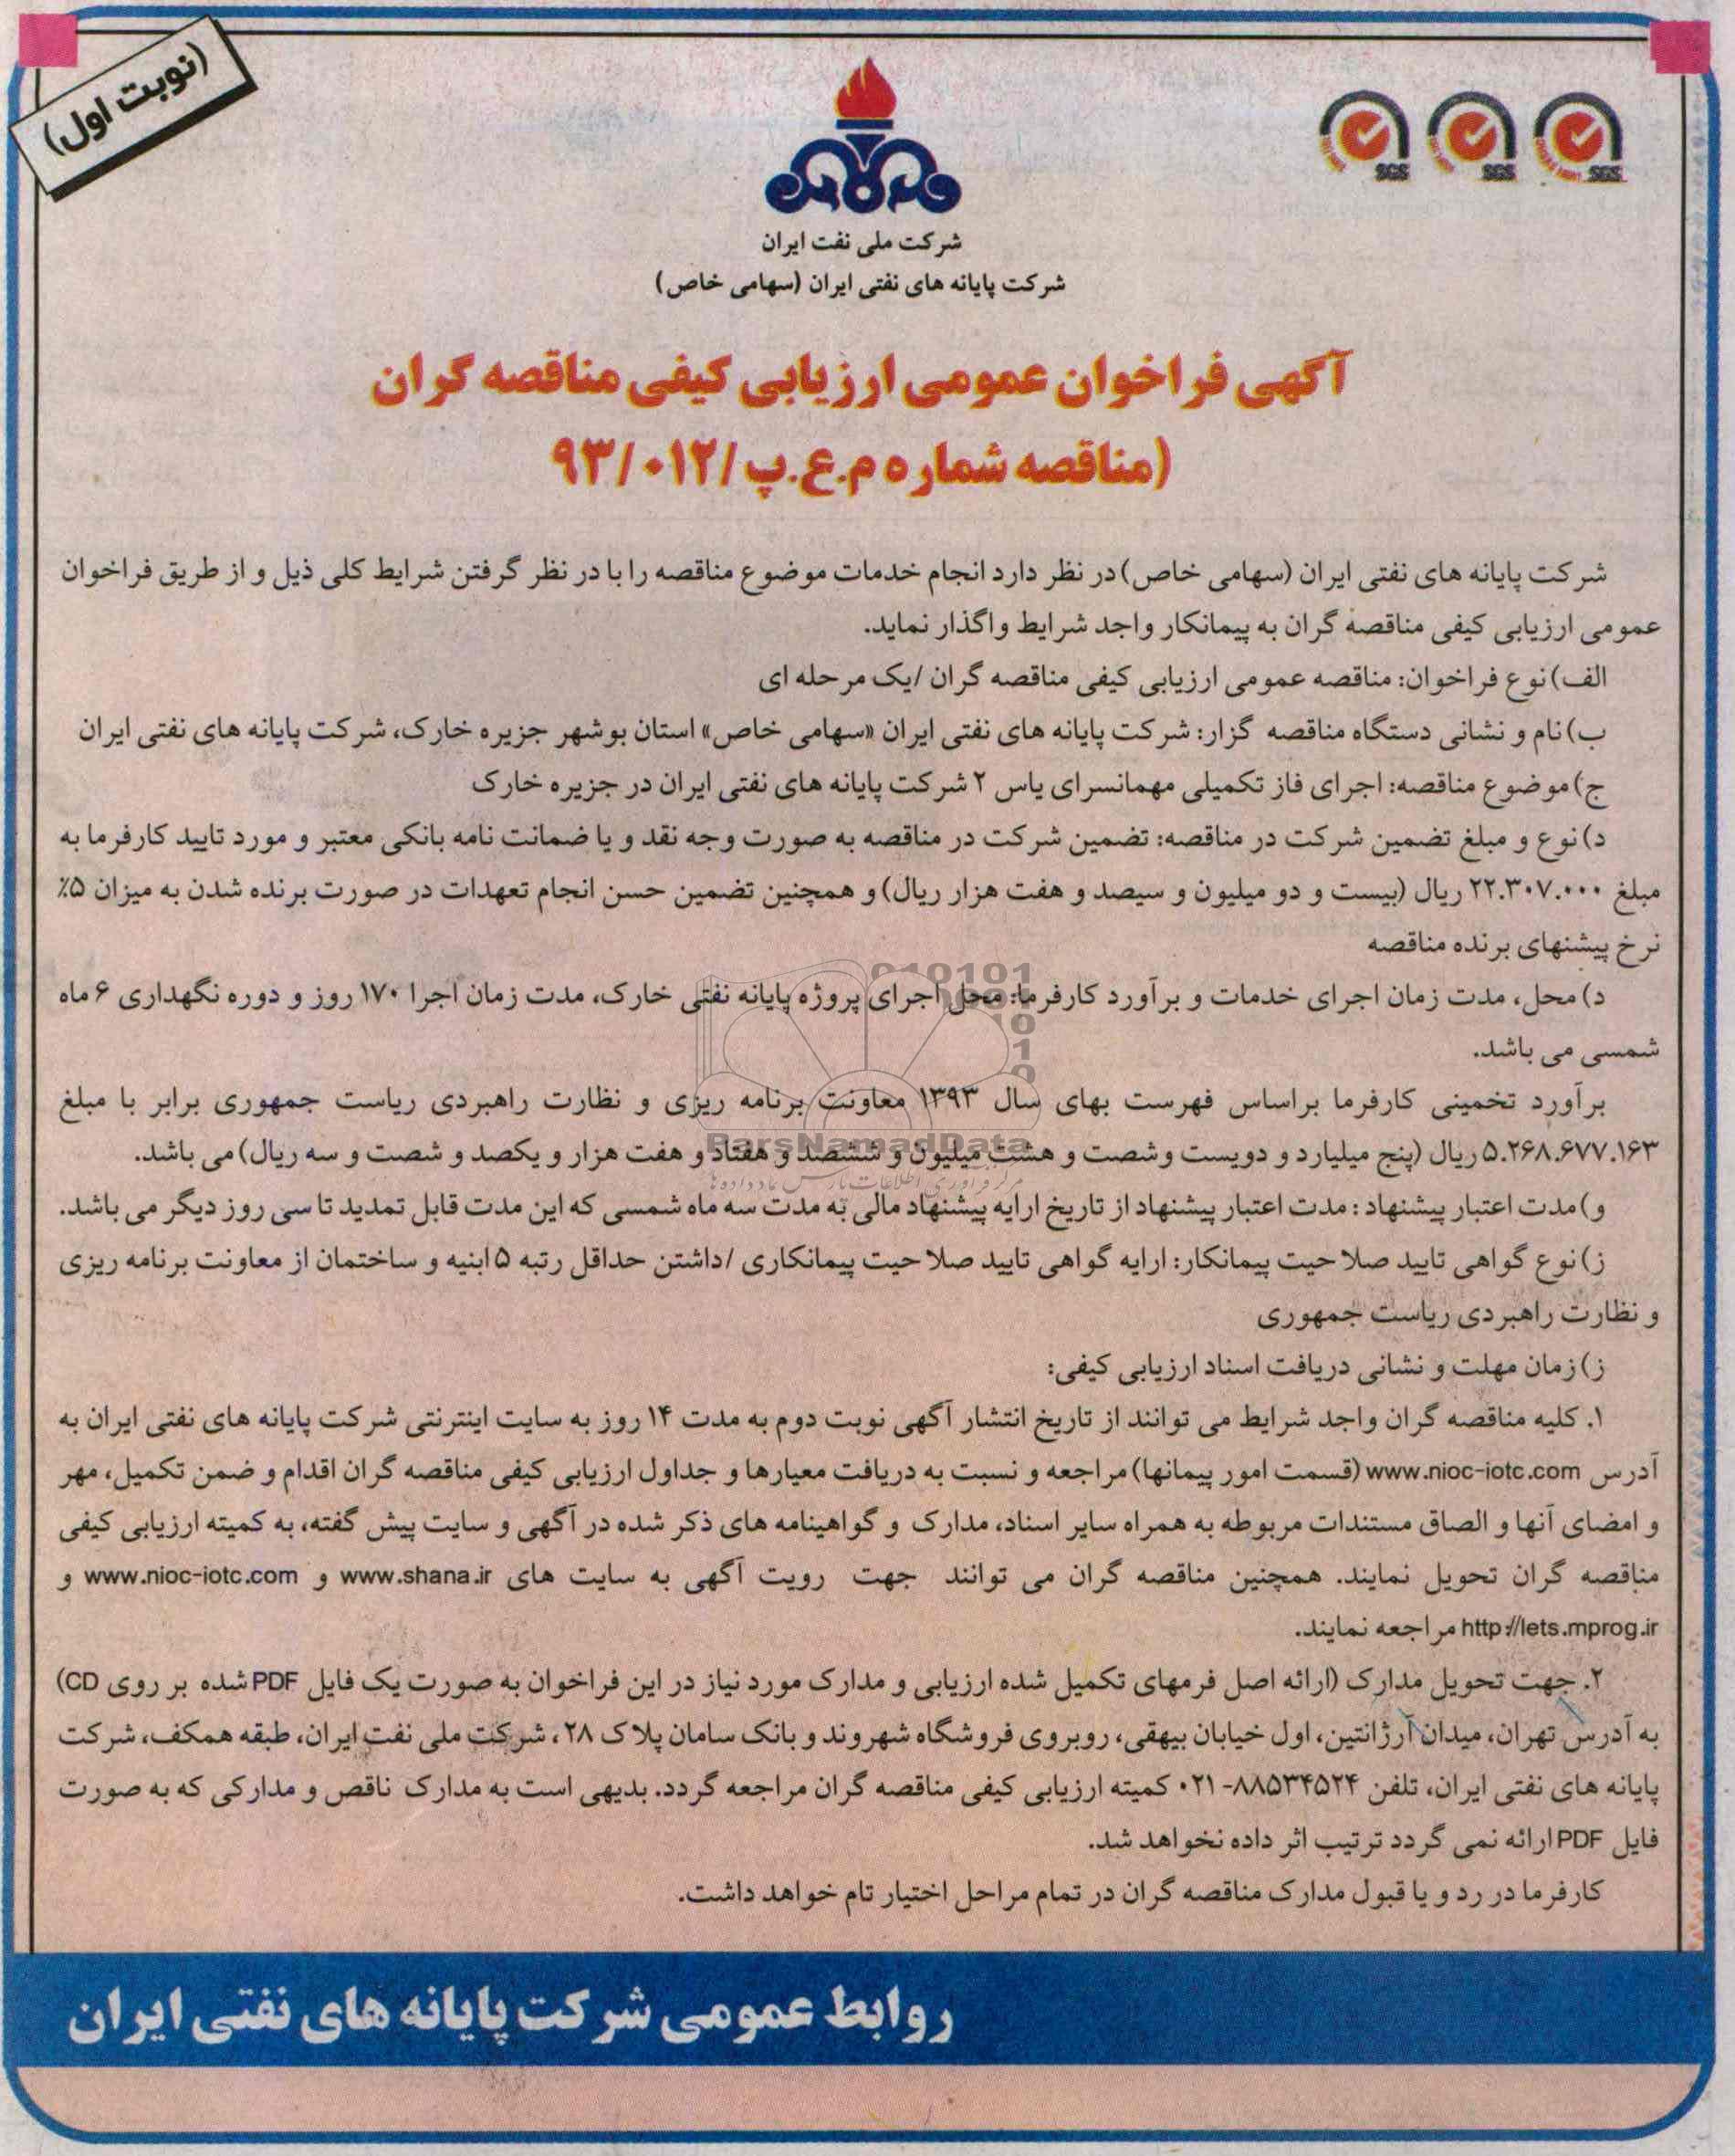 (نوبت اول)
SGS SGS SGS
شرکت ملی نفت ایران
شرکت پایانه های نفتی ایران (سهامی خاص)
آگهی فراخوان عمومی ارزیابی کیفی مناقصه گران
(مناقصه شماره م.ع.پ/۹۳/۰۱۲
شرکت پایانه های نفتی ایران (سهامی خاص) در نظر دارد انجام خدمات موضوع مناقصه را با در نظر گرفتن شرایط کلی ذیل و از طریق فراخوان
عمومی ارزیابی کیفی مناقصه گران به پیمانکار واجد شرایط واگذار نماید.
الف) نوع فراخوان: مناقصه عمومی ارزیابی کیفی مناقصه گران /یک مرحله ای
ب) نام و نشانی دستگاه مناقصه گزار: شرکت پایانه های نفتی ایران «سهامی خاص» استان بوشهر جزیره خارک، شرکت پایانه های نفتی ایران
ج) موضوع مناقصه: اجرای فاز تکمیلی مهمانسرای یاس ۲ شرکت پایانه های نفتی ایران در جزیره خارک
د) نوع و مبلغ تضمین شرکت در مناقصه: تضمین شرکت در مناقصه به صورت وجه نقد و یا ضمانت نامه بانکی معتبر و مورد تایید کارفرما به
مبلغ ۲۲.۳۰۷.۰۰۰ ریال (بیست و دو میلیون و سیصد و هفت هزار ریال) و همچنین تضمین حسن انجام تعهدات در صورت برنده شدن به میزان ۵٪
نرخ پیشنهای برنده مناقصه
د) محل، مدت زمان اجرای خدمات و برآورد کارفرما: محل اجرای پروژه پایانه نفتی خارک، مدت زمان اجرا ۱۷۰ روز و دوره نگهداری ۶ ماه
شمسی می باشد.
برآورد تخمینی کارفرما براساس فهرست بهای سال ۱۳۹۳ معاونت برنامه ریزی و نظارت راهبردی ریاست جمهوری برابر با مبلغ
۵.۲۶۸.۶۷۷.۱۶۳ ریال (پنج میلیارد و دویست وشصت و هشت میلیون و ششصد و هفتاد و هفت هزار و یکصد و شصت و سه ریال) می باشد.
ParsNamadData
مرکز فرآوری اطلاعات پارس نماد داده ها
و) مدت اعتبار پیشنهاد : مدت اعتبار پیشنهاد از تاریخ ارایه پیشنهاد مالی به مدت سه ماه شمسی که این مدت قابل تمدید تا سی روز دیگر می باشد.
ز) نوع گواهی تایید صلاحیت پیمانکار: ارایه گواهی تایید صلاحیت پیمانکاری /داشتن حداقل رتبه ۵ ابنیه و ساختمان از معاونت برنامه ریزی
و نظارت راهبردی ریاست جمهوری
ز) زمان مهلت و نشانی دریافت اسناد ارزیابی کیفی:
۱. کلیه مناقصه گران واجد شرایط می توانند از تاریخ انتشار آگهی نوبت دوم به مدت ۱۴ روز به سایت اینترنتی شرکت پایانه های نفتی ایران به
آدرس www.nioc-iotc.com (قسمت امور پیمانها) مراجعه و نسبت به دریافت معیارها و جداول ارزیابی کیفی مناقصه گران اقدام و ضمن تکمیل، مهر
و امضای آنها و الصاق مستندات مربوطه به همراه سایر اسناد، مدارک و گواهینامه های ذکر شده در آگهی و سایت پیش گفته، به کمیته ارزیابی کیفی
مناقصه گران تحویل نمایند. همچنین مناقصه گران می توانند جهت رویت آگهی به سایت های www.shana.ir و www.nioc-iotc.com و
http://lets.mprog.ir مراجعه نمایند.
۲. جهت تحویل مدارک (ارائه اصل فرمهای تکمیل شده ارزیابی و مدارک مورد نیاز در این فراخوان به صورت یک فایل PDF شده بر روی CD)
به آدرس تهران، میدان آرژانتین، اول خیابان بیهقی، روبروی فروشگاه شهروند و بانک سامان پلاک ۲۸، شرکت ملی نفت ایران، طبقه همکف، شرکت
پایانه های نفتی ایران، تلفن ۸۸۵۳۴۵۲۴- ۰۲۱ کمیته ارزیابی کیفی مناقصه گران مراجعه گردد. بدیهی است به مدارک ناقص و مدارکی که به صورت
فایل PDF ارائه نمی گردد ترتیب اثر داده نخواهد شد.
کارفرما در رد و یا قبول مدارک مناقصه گران در تمام مراحل اختیار تام خواهد داشت.
روابط عمومی شرکت پایانه های نفتی ایران